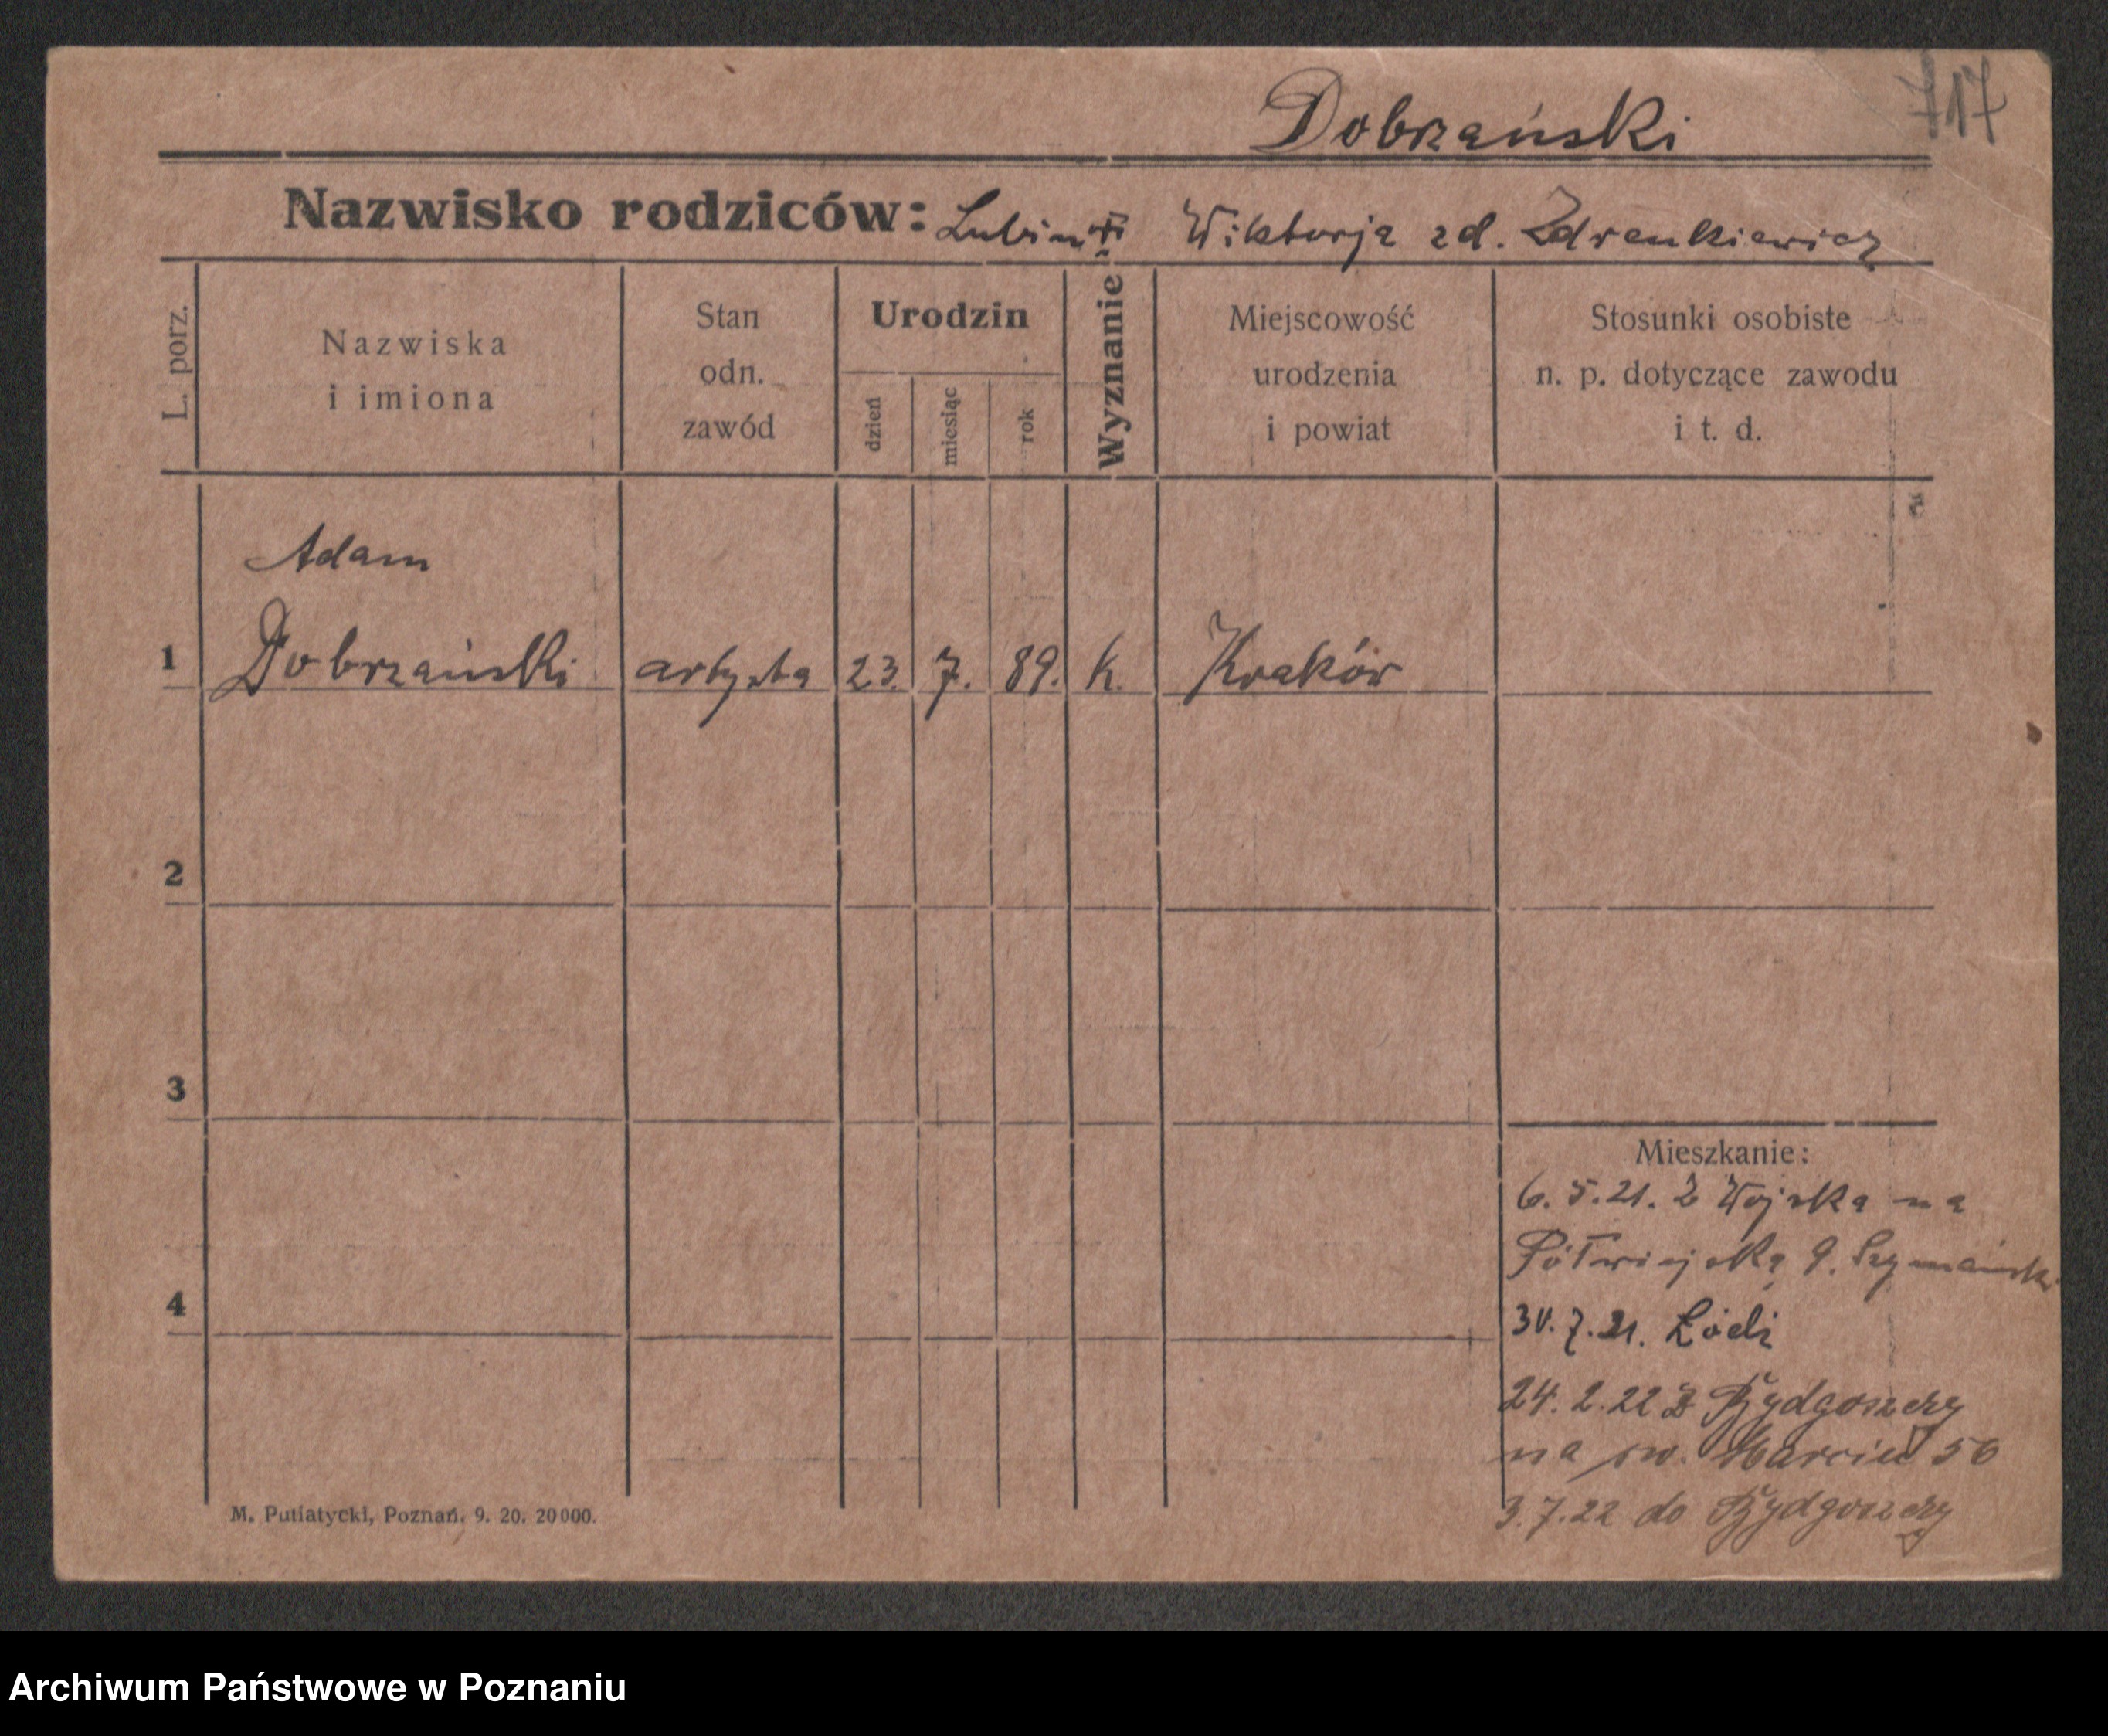 717
Dobrzański
Nazwisko rodziców: Wiktorja zd. Zdrenkiewicz
L. porz.
Nazwiska
i imiona
Stan
odn.
zawód
Urodzin
dzień
miesiąc
rok
Wyznanie
Miejscowość
urodzenia
i powiat
Stosunki osobiste
n. p. dotyczące zawodu
i t. d.
Adam
1 Dobrzański artysta 23. 7. 89. k. Kraków
2
3
4
Mieszkanie:
6. 5. 21. Z Wojska na
Półwiejską 9. Szymański
30. 7. 21. Łódź
24. 2. 22 Z Bydgoszczy
na św. Marcin 56
3. 7. 22 do Bydgoszczy
M. Putiatycki, Poznań. 9. 20. 20000.
Archiwum Państwowe w Poznaniu